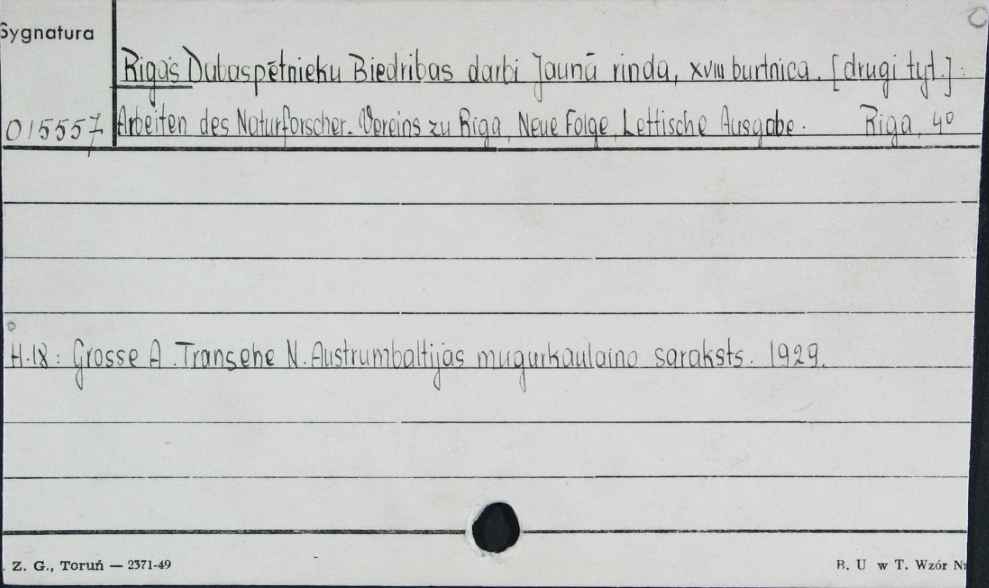 Sygnatura
Rigas Dabaspētnieku Biedribas darbi Jaunā rinda, XVIII burtnica. [drugi tyt.]:
015557 Arbeiten des Naturforscher-Vereins zu Riga, Neue Folge, Lettische Ausgabe. Riga, 4°
H.18: Grosse A. Transehe N. Austrumbaltijas mugurkaulaino saraksts. 1929.
Z. G., Toruń — 2371-49
B. U w T. Wzór Nr